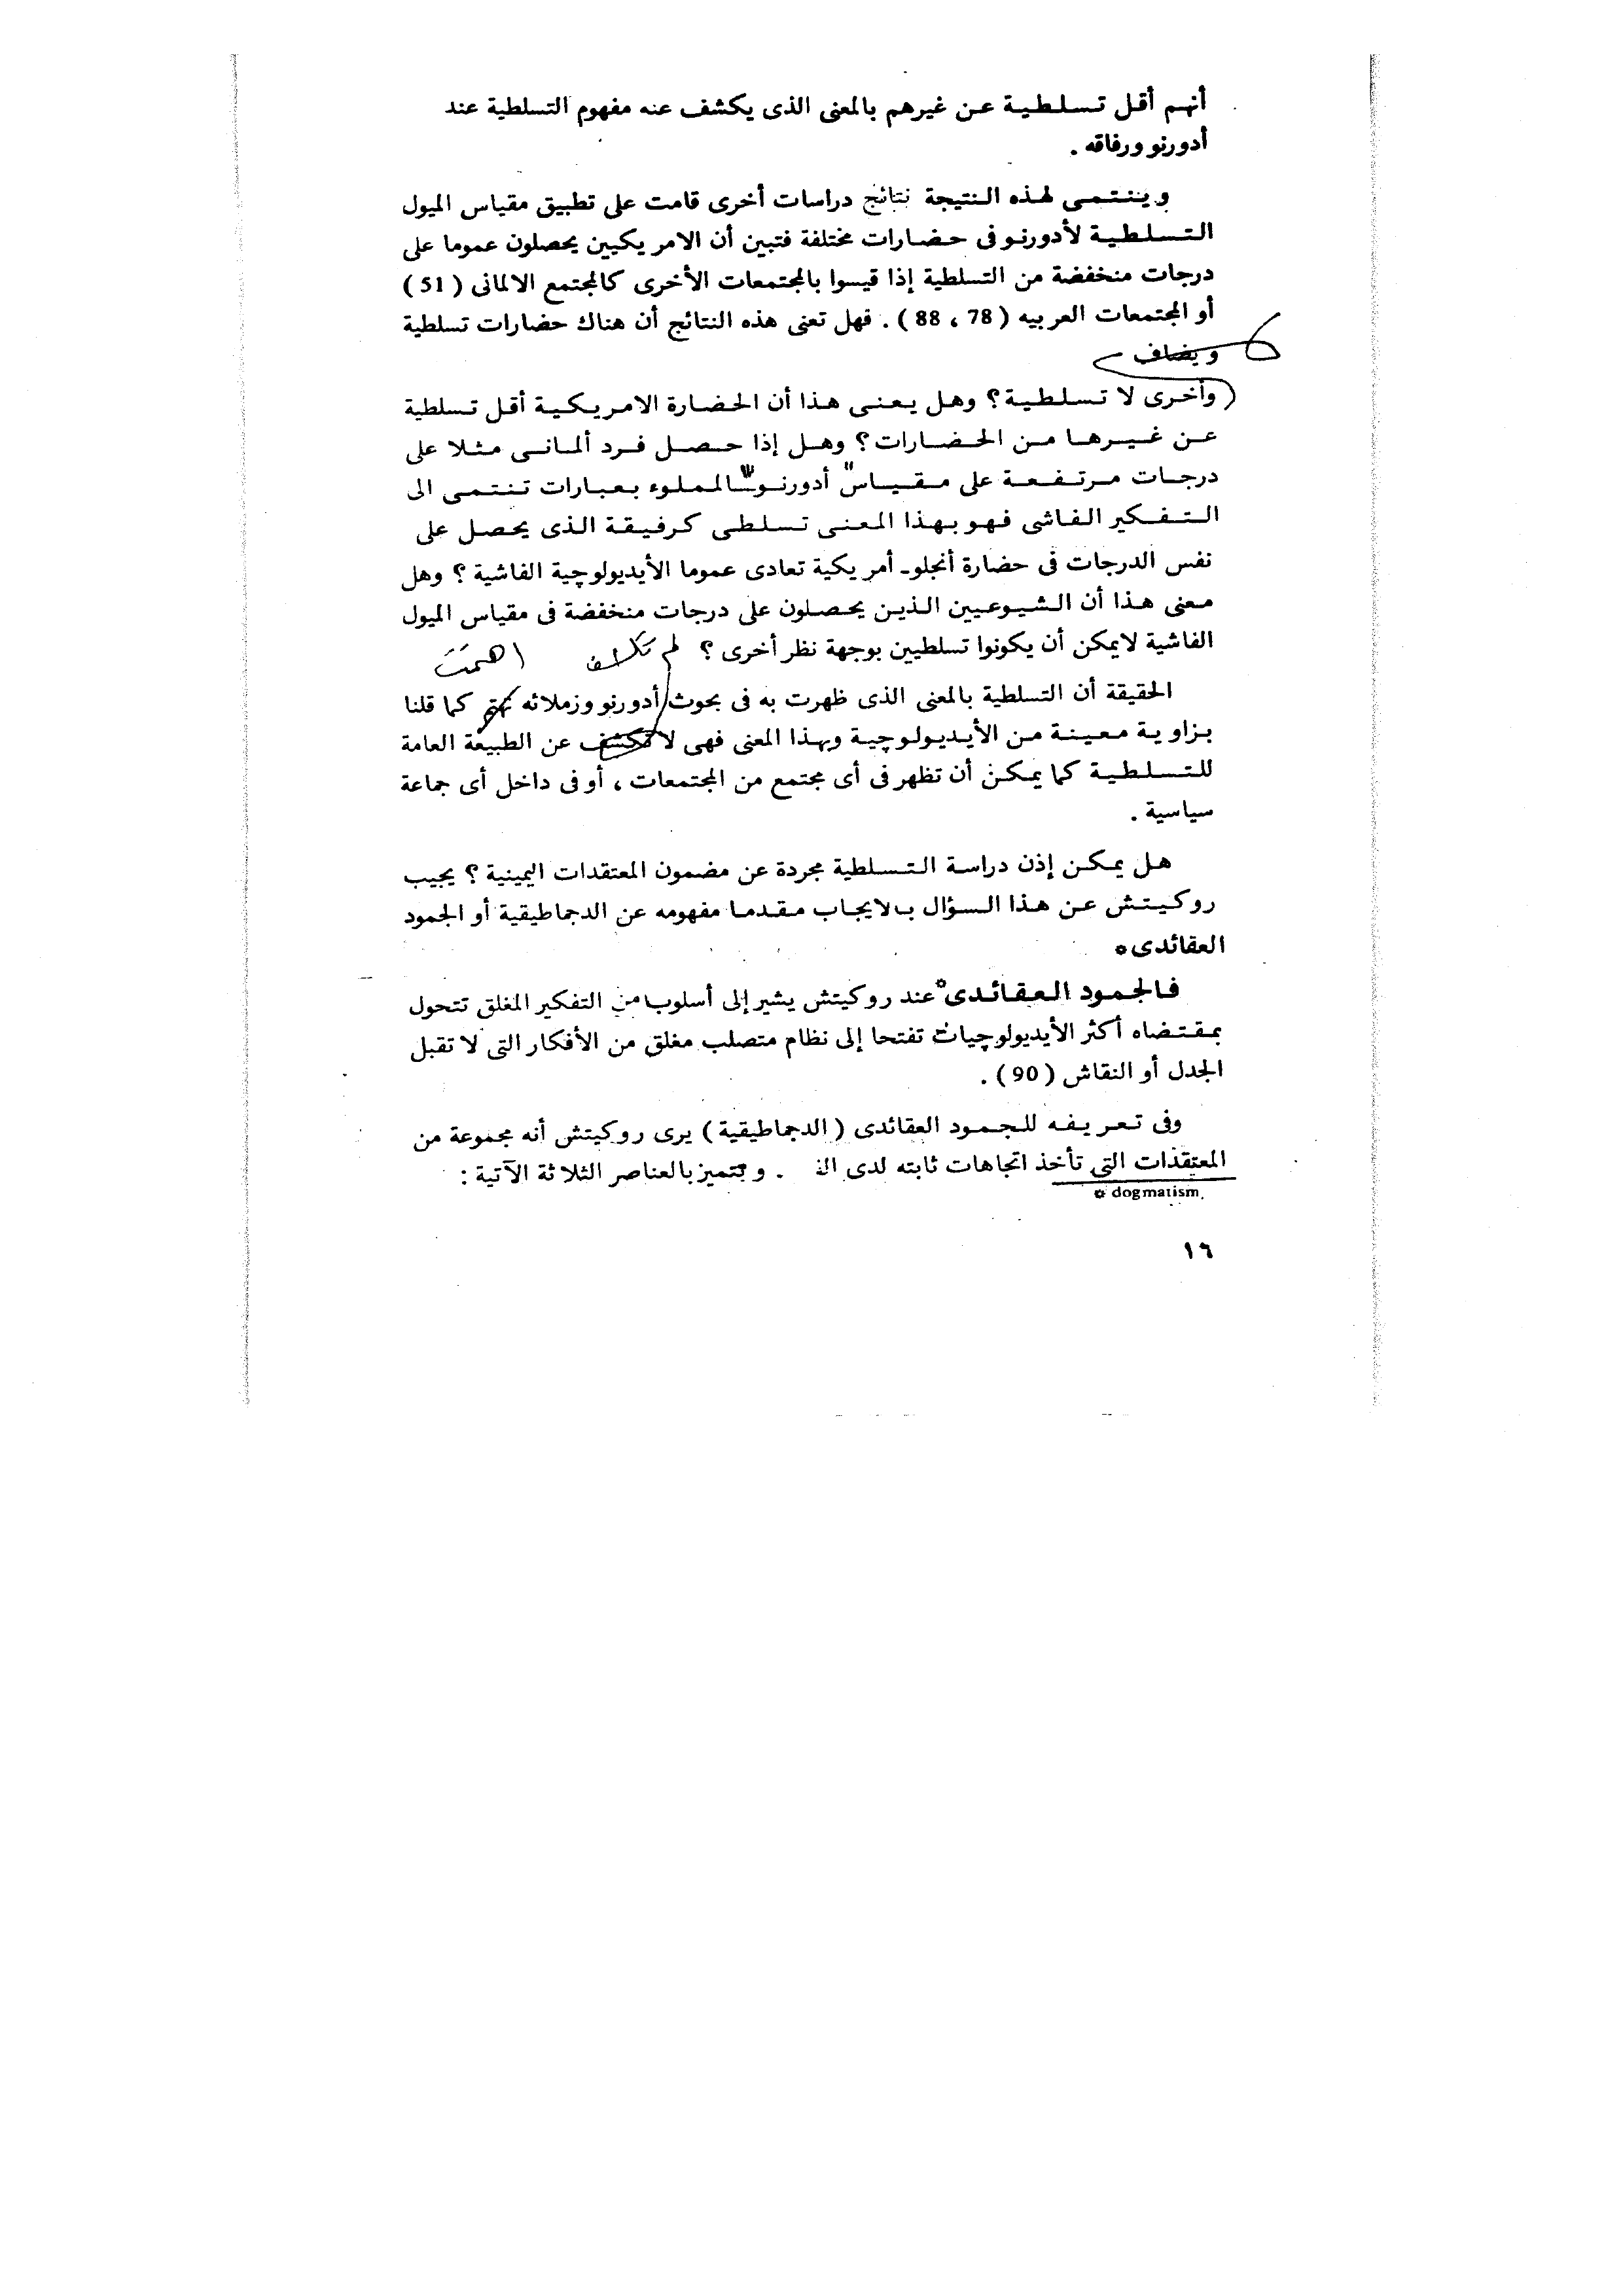 أنهم أقل تسلطية عن غيرهم بالمعنى الذى يكشف عنه مفهوم التسلطية عند
أدورنو ورفاقه .
وينتمى لهذه النتيجة نتائج دراسات أخرى قامت على تطبيق مقياس الميول
التسلطية لأدورنو فى حضارات مختلفة فتبين أن الامريكيين يحصلون عموما على
درجات منخفضة من التسلطية إذا قيسوا بالمجتمعات الأخرى كالمجتمع الالمانى ( 51 )
أو المجتمعات العربيه ( 78 ، 88 ) . فهل تعنى هذه النتائج أن هناك حضارات تسلطية
ويضاف
وأخرى لا تسلطية ؟ وهل يعنى هذا أن الحضارة الامريكية أقل تسلطية
عن غيرها من الحضارات ؟ وهل إذا حصل فرد ألمانى مثلا على
درجات مرتفعة على مقياس " أدورنو " المملوء بعبارات تنتمى الى
التفكير الفاشى فهو بهذا المعنى تسلطى كرفيقة الذى يحصل على
نفس الدرجات فى حضارة أنجلو - أمريكية تعادى عموما الأيديولوجية الفاشية ؟ وهل
معنى هذا أن الشيوعيين الذين يحصلون على درجات منخفضة فى مقياس الميول
الفاشية لايمكن أن يكونوا تسلطيين بوجهة نظر أخرى ؟ لم تكشف اهتمت
الحقيقة أن التسلطية بالمعنى الذى ظهرت به فى بحوث أدورنو وزملائه تهتم كما قلنا
بزاوية معينة من الأيديولوجية وبهذا المعنى فهى لا تكشف عن الطبيعة العامة
للتسلطية كما يمكن أن تظهر فى أى مجتمع من المجتمعات ، أو فى داخل أى جماعة
سياسية .
هل يمكن إذن دراسة التسلطية مجردة عن مضمون المعتقدات اليمينية ؟ يجيب
روكيتش عن هذا السؤال بالايجاب مقدما مفهومه عن الدجماطيقية أو الجمود
العقائدى*
فالجمود العقائدى* عند روكيتش يشير إلى أسلوب من التفكير المغلق تتحول
بمقتضاه أكثر الأيديولوجيات تفتحا إلى نظام متصلب مغلق من الأفكار التى لا تقبل
الجدل أو النقاش ( 90 ) .
وفى تعريفه للجمود العقائدى ( الدجماطيقية ) يرى روكيتش أنه مجموعة من
المعتقدات التى تأخذ اتجاهات ثابته لدى . وتتميز بالعناصر الثلاثة الآتية :
* dogmatism.
١٦